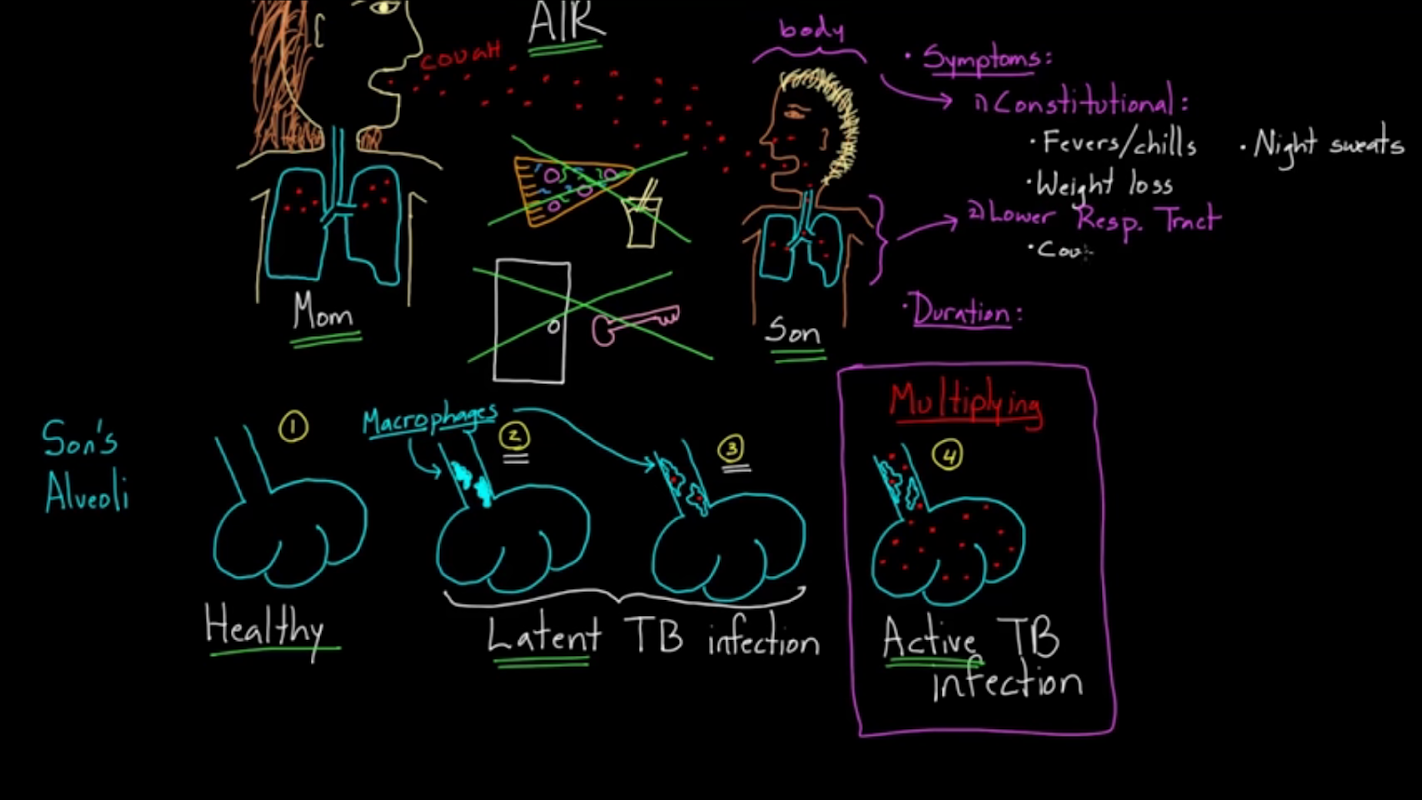 AIR
COUGH
body
• Symptoms:
1) Constitutional:
• Fevers/chills • Night sweats
• Weight loss
2) Lower Resp. Tract
• Cou
• Duration:
Mom
Son
Son's
Alveoli
1
Macrophages
2
3
Multiplying
4
Healthy
Latent TB infection
Active TB
infection